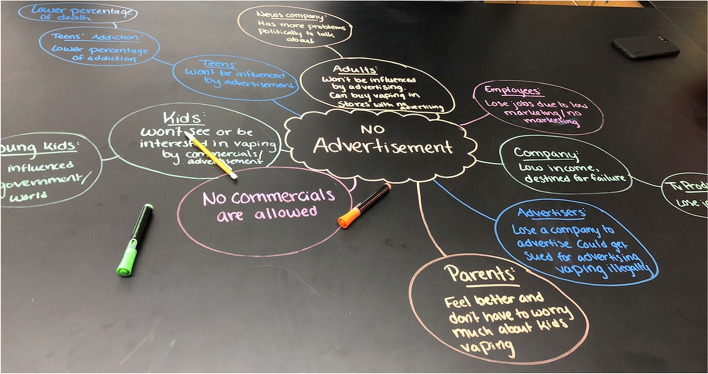 Lower percentage
of death
Teens' Addiction:
Lower percentage
of addiction
Teens:
Won't be influenced
by advertisement
News company:
Has more problems
politically to talk
about
Adults:
Won't be influenced
by advertising.
Can buy vaping in
stores with no advertising
Kids:
won't see or be
interested in vaping
by commercials/
advertisement
oung Kids:
influenced
government/
world
NO
Advertisement
No commercials
are allowed
Employees:
Lose jobs due to low
marketing/no
marketing
Company:
Low income,
destined for failure
Tv Produ
Lose jo
Advertisers:
Lose a company to
advertise Could get
sued for advertising
vaping illegally
Parents:
Feel better and
don't have to worry
much about kids
vaping